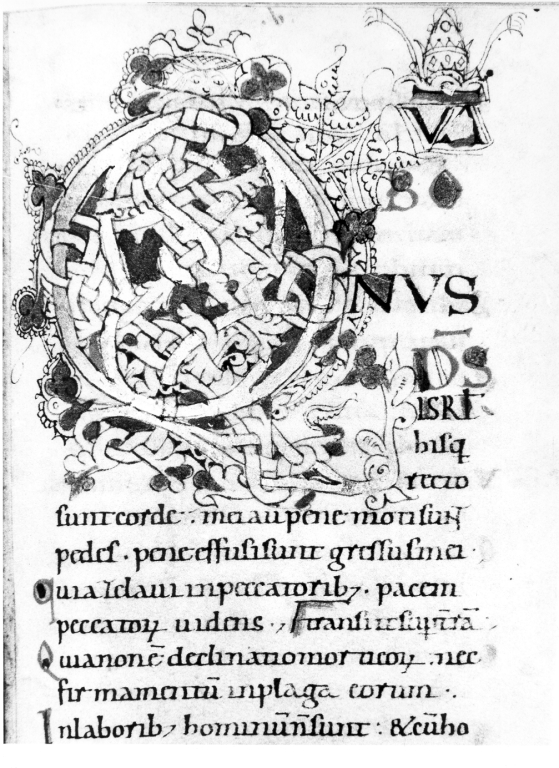 Q VA
BO
NVS
D̄S
ISRL
his q
recto
sunt corde . mei aū pene moti sun̄
pedes . pene effusi sunt gressus mei .
quia zelaui in peccatorib; . pacem
peccatoꝝ uidens .
Quia non ē declinatio morti eoꝝ . nec
firmamentū in plaga eorum .
In laborib; hominū n̄ sunt : & cū ho